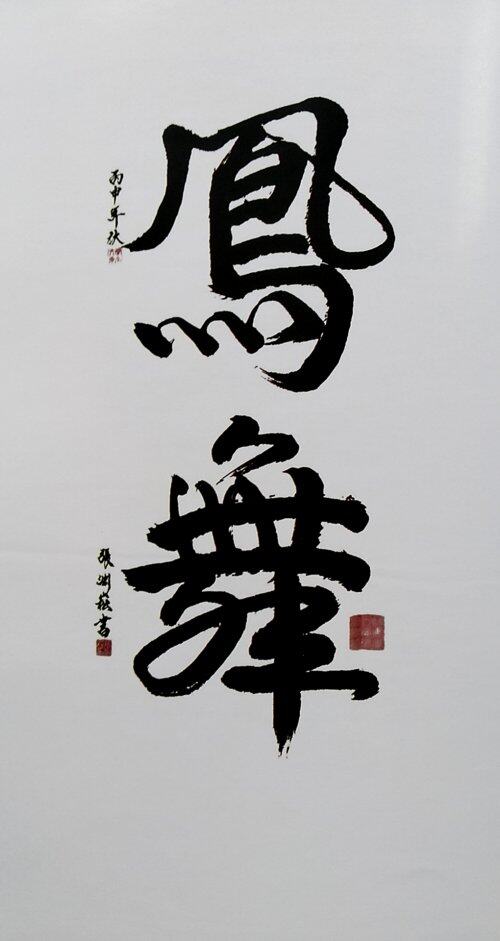 鳳舞
丙申年秋
張淵蓀書